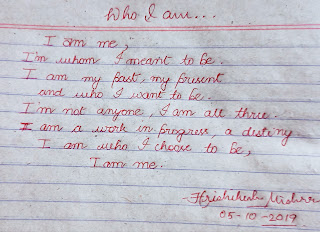 Who I am...
I am me;
I'm whom I meant to be.
I am my past, my present
and who I want to be.
I'm not anyone, I am all three.
I am a work in progress, a destiny
I am who I choose to be,
I am me.
Hrishikesh
05-10-2019